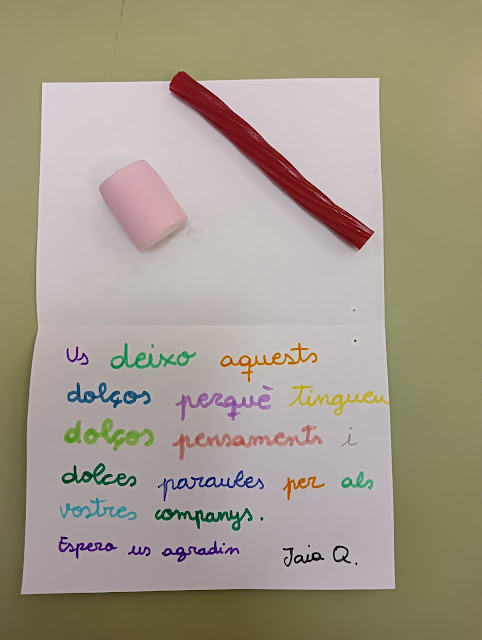 Us deixo aquests
dolços perquè tingueu
dolços pensaments i
dolces paraules per als
vostres companys.
Espero us agradin Iaia Q.